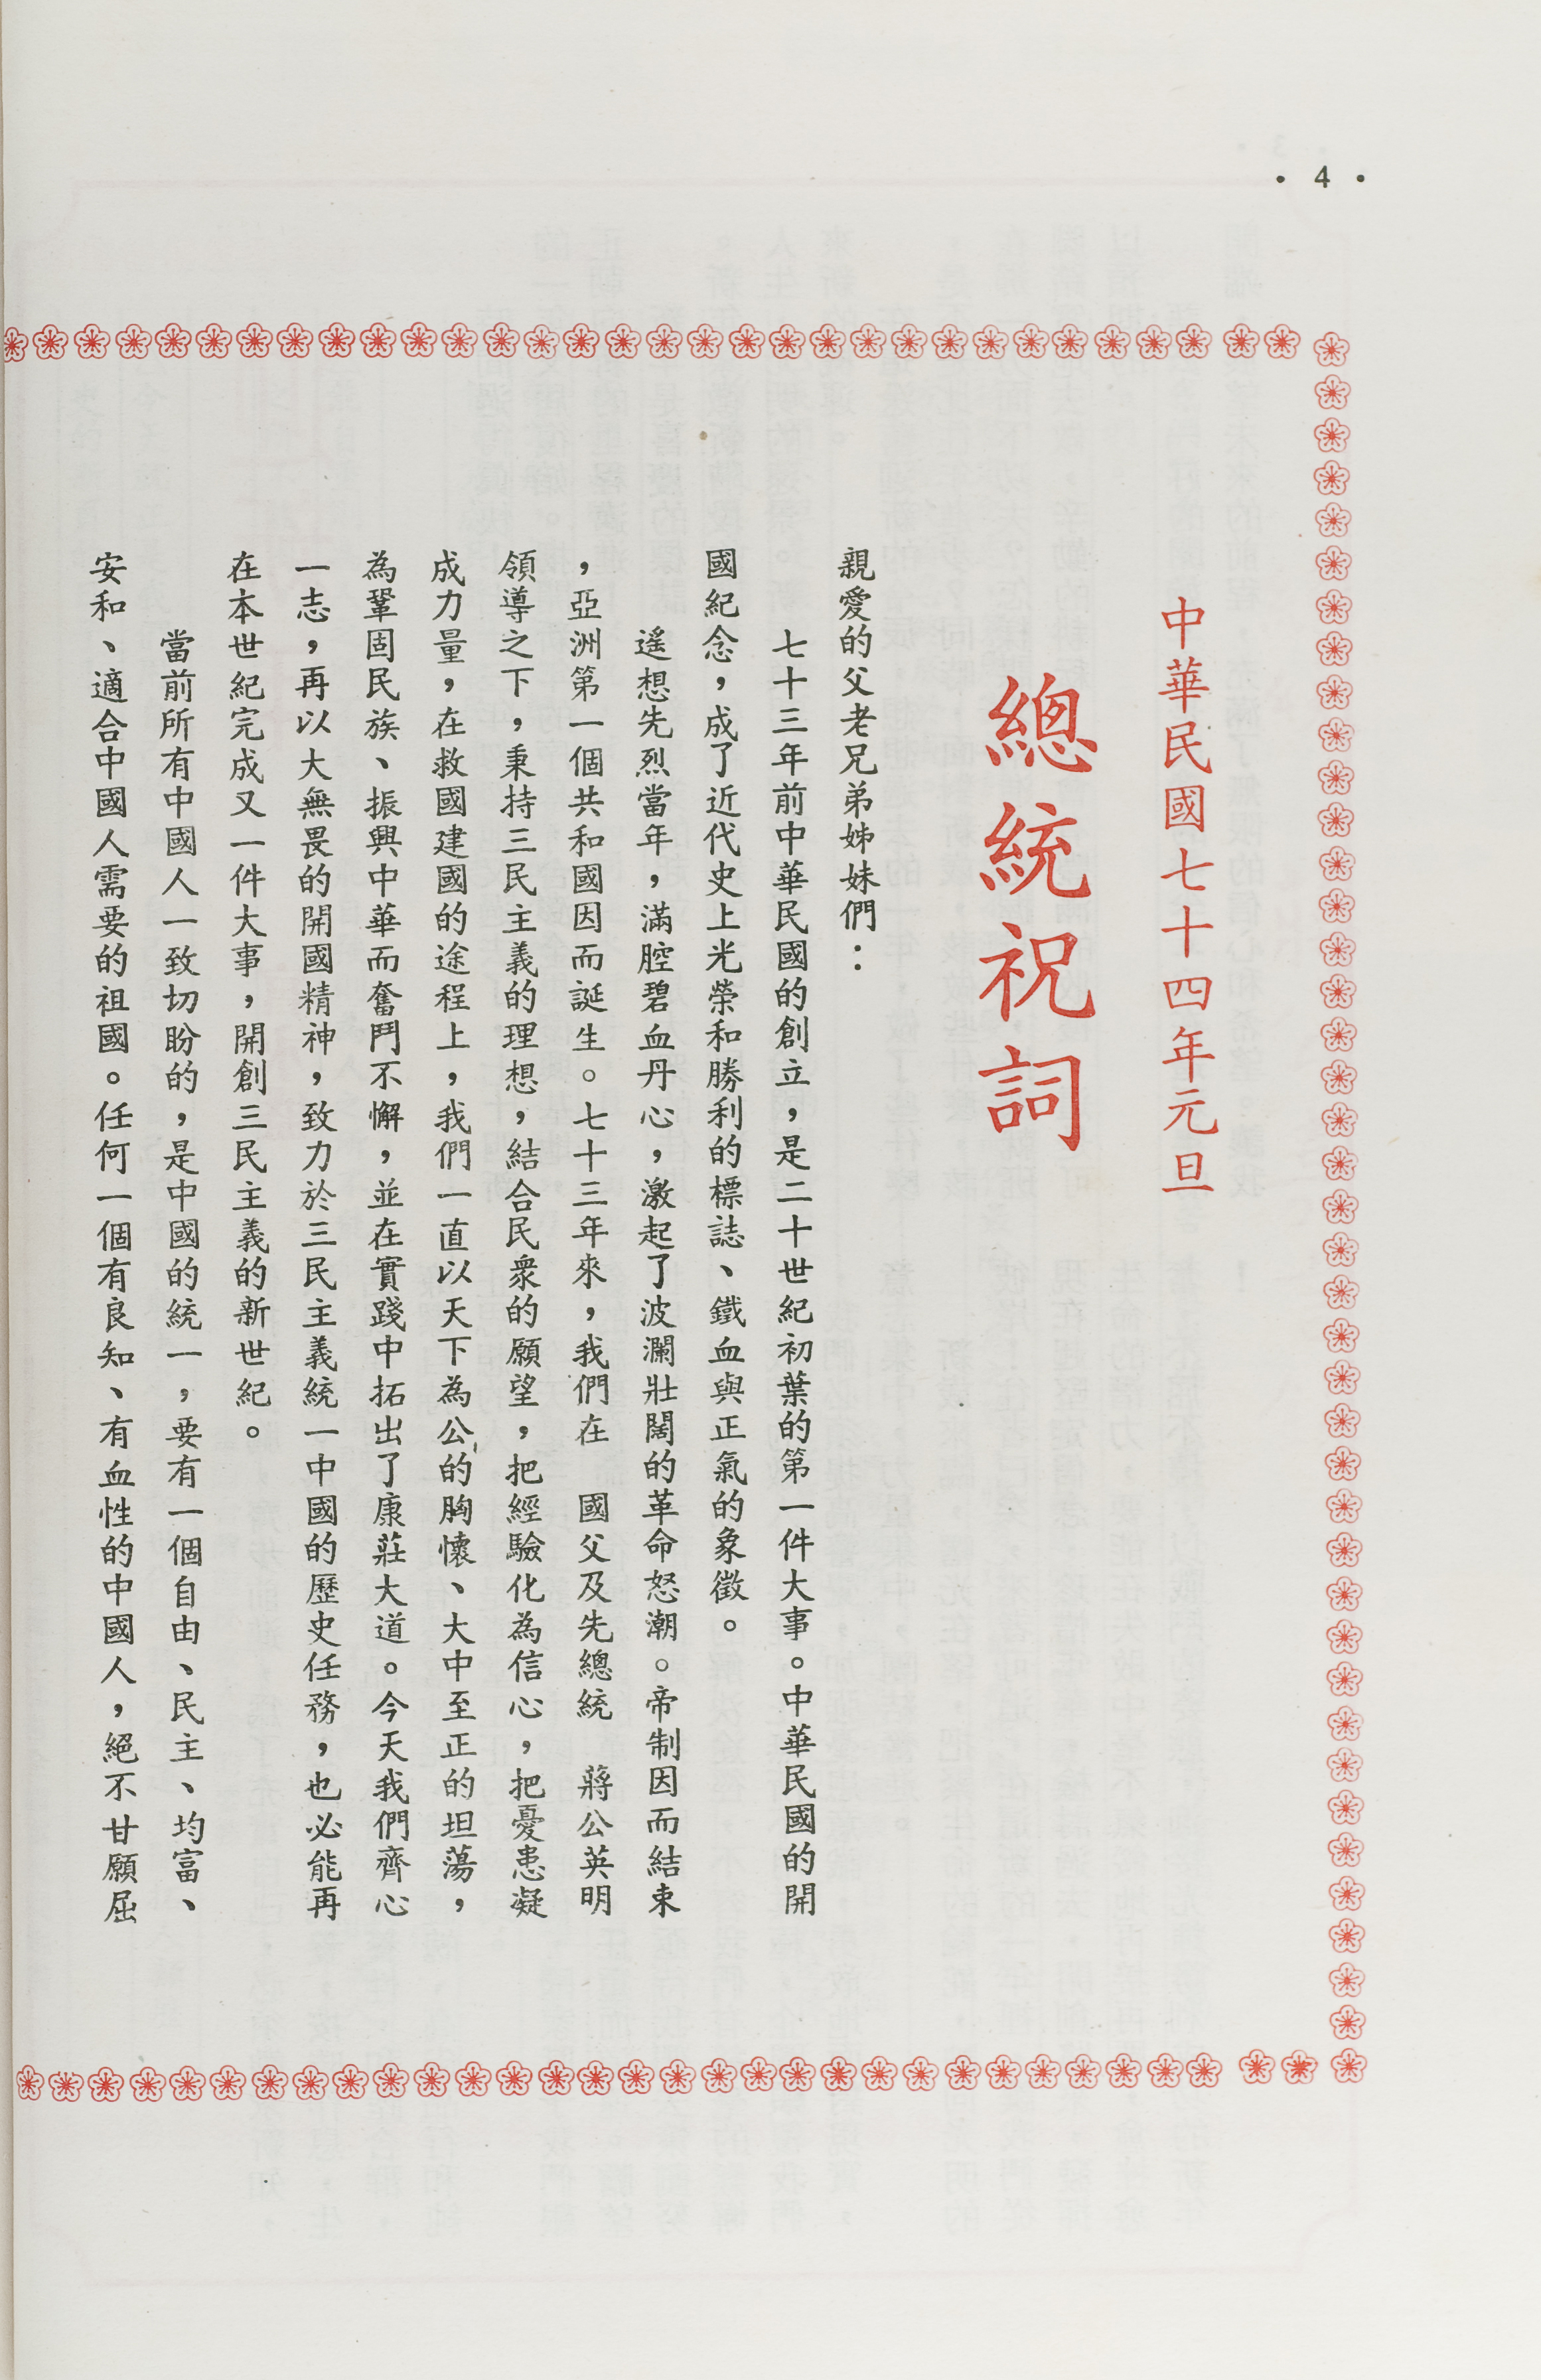 • 4 •
中華民國七十四年元旦
總統祝詞
親愛的父老兄弟姊妹們：
七十三年前中華民國的創立，是二十世紀初葉的第一件大事。中華民國的開
國紀念，成了近代史上光榮和勝利的標誌、鐵血與正氣的象徵。
遙想先烈當年，滿腔碧血丹心，激起了波瀾壯闊的革命怒潮。帝制因而結束
，亞洲第一個共和國因而誕生。七十三年來，我們在　國父及先總統　蔣公英明
領導之下，秉持三民主義的理想，結合民衆的願望，把經驗化為信心，把憂患凝
成力量，在救國建國的途程上，我們一直以天下為公的胸懷、大中至正的坦蕩，
為鞏固民族、振興中華而奮鬥不懈，並在實踐中拓出了康莊大道。今天我們齊心
一志，再以大無畏的開國精神，致力於三民主義統一中國的歷史任務，也必能再
在本世紀完成又一件大事，開創三民主義的新世紀。
當前所有中國人一致切盼的，是中國的統一，要有一個自由、民主、均富、
安和、適合中國人需要的祖國。任何一個有良知、有血性的中國人，絕不甘願屈